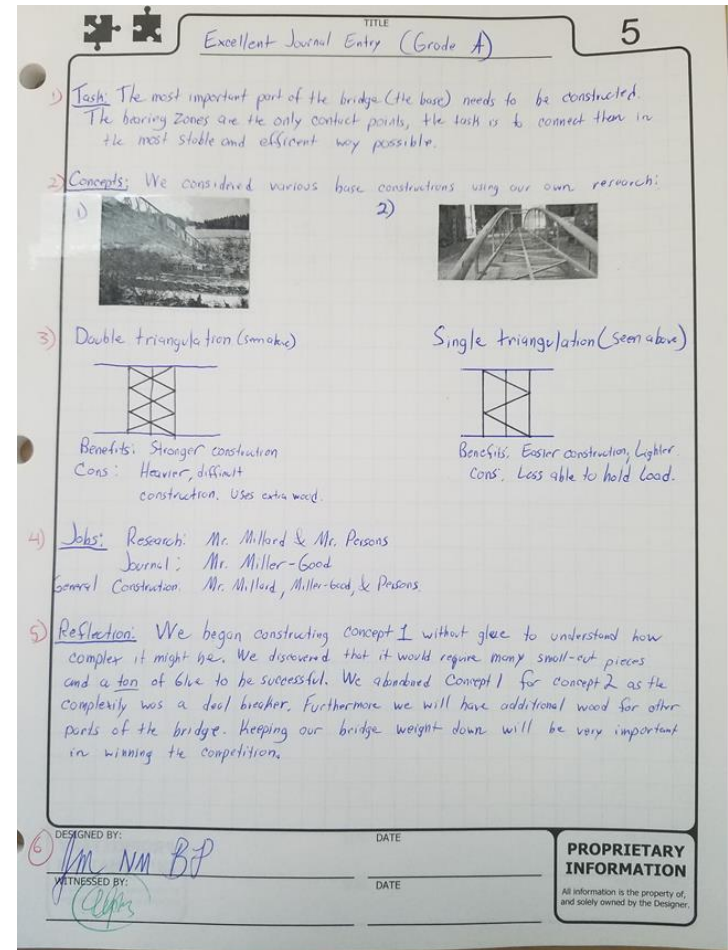 TITLE
Excellent Journal Entry (Grade A)
5
1) Task: The most important part of the bridge (the base) needs to be constructed.
The bearing Zones are the only contact points, the task is to connect them in
the most stable and efficent way possible.
2) Concepts: We considered various base constructions using our own research:
1) 2)
3) Double triangulation (seen above) Single triangulation (seen above)
Benefits: Stronger construction
Cons: Heavier, difficult
construction. Uses extra wood.
Benefits: Easier construction, Lighter.
Cons: Less able to hold Load.
4) Jobs: Research: Mr. Millard & Mr. Persons
Journal: Mr. Miller-Good
General Construction: Mr. Millard, Miller-Good, & Persons
5) Reflection: We began constructing concept 1 without glue to understand how
complex it might be. We discovered that it would require many small-cut pieces
and a ton of Glue to be successful. We abandoned Concept 1 for concept 2 as the
complexity was a deal breaker. Furthermore we will have additional wood for other
parts of the bridge. Keeping our bridge weight down will be very important
in winning the competition.
6)
DESIGNED BY:
JM NM BP
DATE
WITNESSED BY:
DATE
PROPRIETARY
INFORMATION
All information is the property of,
and solely owned by the Designer.